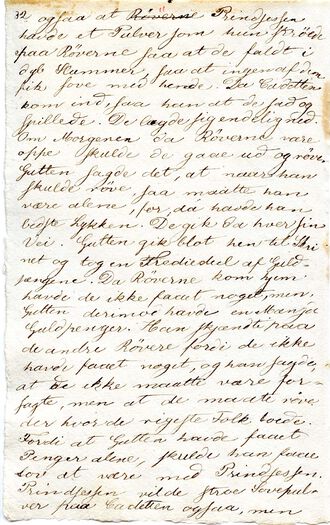 32 ogsaa at Røverne Prindsessen
havde et Pulver som hun strøede
paa Røverne saa at de faldt i
dyb Slummer, saa at ingen af dem
fik sove med hende. Da Cadetten
kom ind, saa han at de sad og
spillede. De lagde sig endelig ned.
Om Morgenen da Røverne vare
oppe skulde de gaae ud og røve.
Gutten sagde det, at naar han
skulde røve, saa maatte han
være alene, for, da havde han
bedste Lykken. De gik da hver sin
Vei. Gutten gik blot hen til Skri-
net og tog en Trediedeel af Guld-
pengene. Da Røverne kom hjem
havde de ikke faaet noget, men,
Gutten derimod havde en Mangde
Guldpenger. Han skjændte paa
de andre Røvere fordi de ikke
havde faaet noget, og han sagde,
at de ikke maatte være for-
sagte, men at de maatte røve
der hvor de rigeste Folk boede.
Fordi at Gutten havde faaet
Penger alene, skulde han faae
sove at være med Prindsessen.
Prindsessen vilde strøe Sovepul-
ver paa Cadetten ogsaa, men